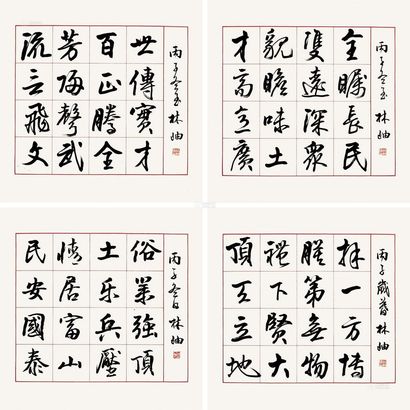 流芳百世
言歸正傳
飛聲騰實
文武全才
丙子冬至 林岫
才貌雙全
高瞻遠矚
意味深長
廣土衆民
丙子冬至 林岫
民情土俗
安居乐業
國富兵強
泰山壓頂
丙子冬日 林岫
頂禮膜拜
天下第一
立賢無方
地大物博
丙子歲暮 林岫